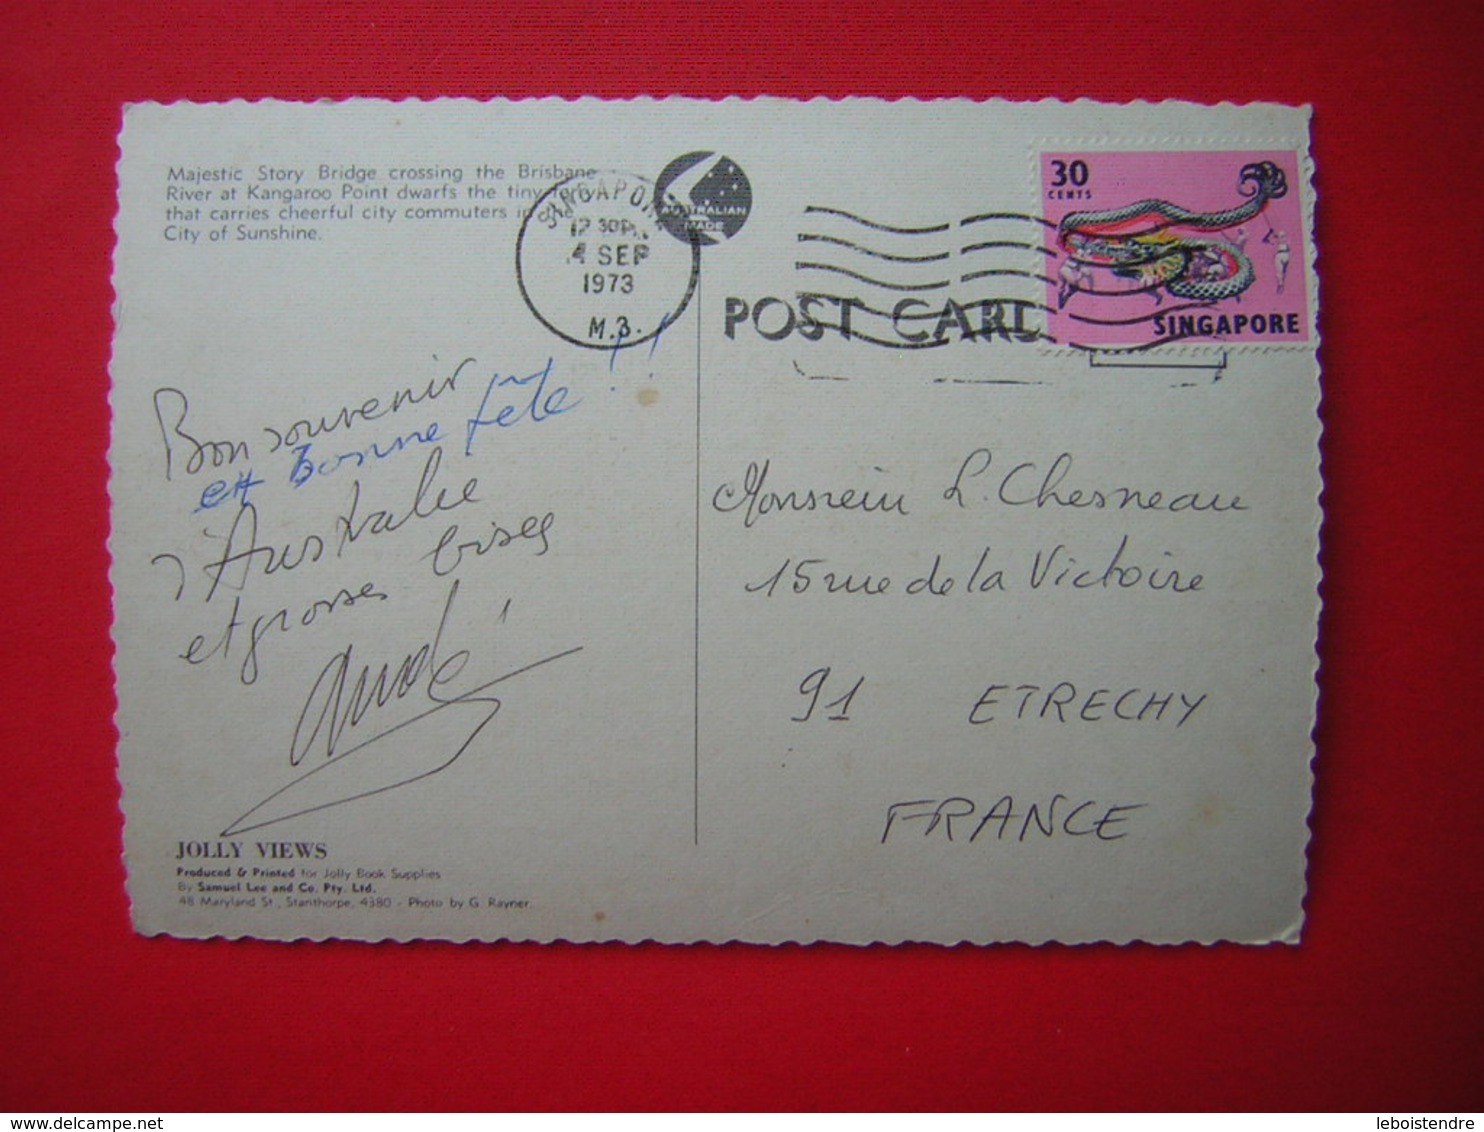 Majestic Story Bridge crossing the Brisbane
River at Kangaroo Point dwarfs the tiny ferry
that carries cheerful city commuters in the
City of Sunshine.
SINGAPORE
12 30PM
4 SEP
1973
M.3.
AUSTRALIAN
MADE
30
CENTS
SINGAPORE
POST CARD
Bon souvenir
et bonne fête !!
d'Australie
et grosses bises
Monsieur L. Chesneau
15 rue de la Victoire
91 ETRECHY
FRANCE
JOLLY VIEWS
Produced & Printed for Jolly Book Supplies
By Samuel Lee and Co. Pty. Ltd.
48 Maryland St., Stanthorpe, 4380 - Photo by G. Rayner.
leboistendre